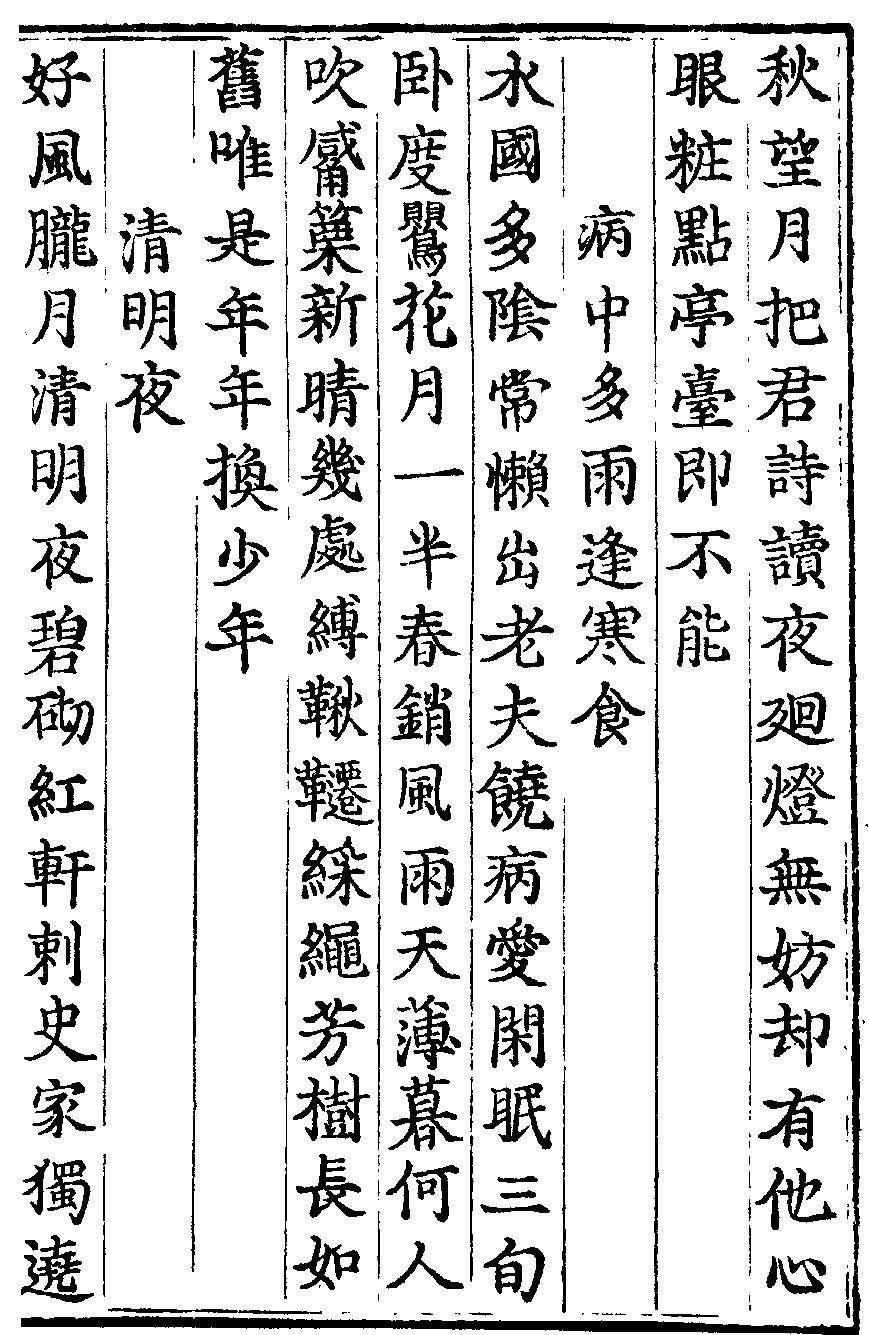 秋望月把君詩讀夜廻燈無妨却有他心
眼粧點亭臺即不能
病中多雨逢寒食
水國多陰常懶出老夫饒病愛閑眠三旬
卧度鸎花月一半春銷風雨天薄暮何人
吹觱篥新晴幾處縛鞦韆綵繩芳樹長如
舊唯是年年換少年
清明夜
好風朧月清明夜碧砌紅軒刺史家獨遶